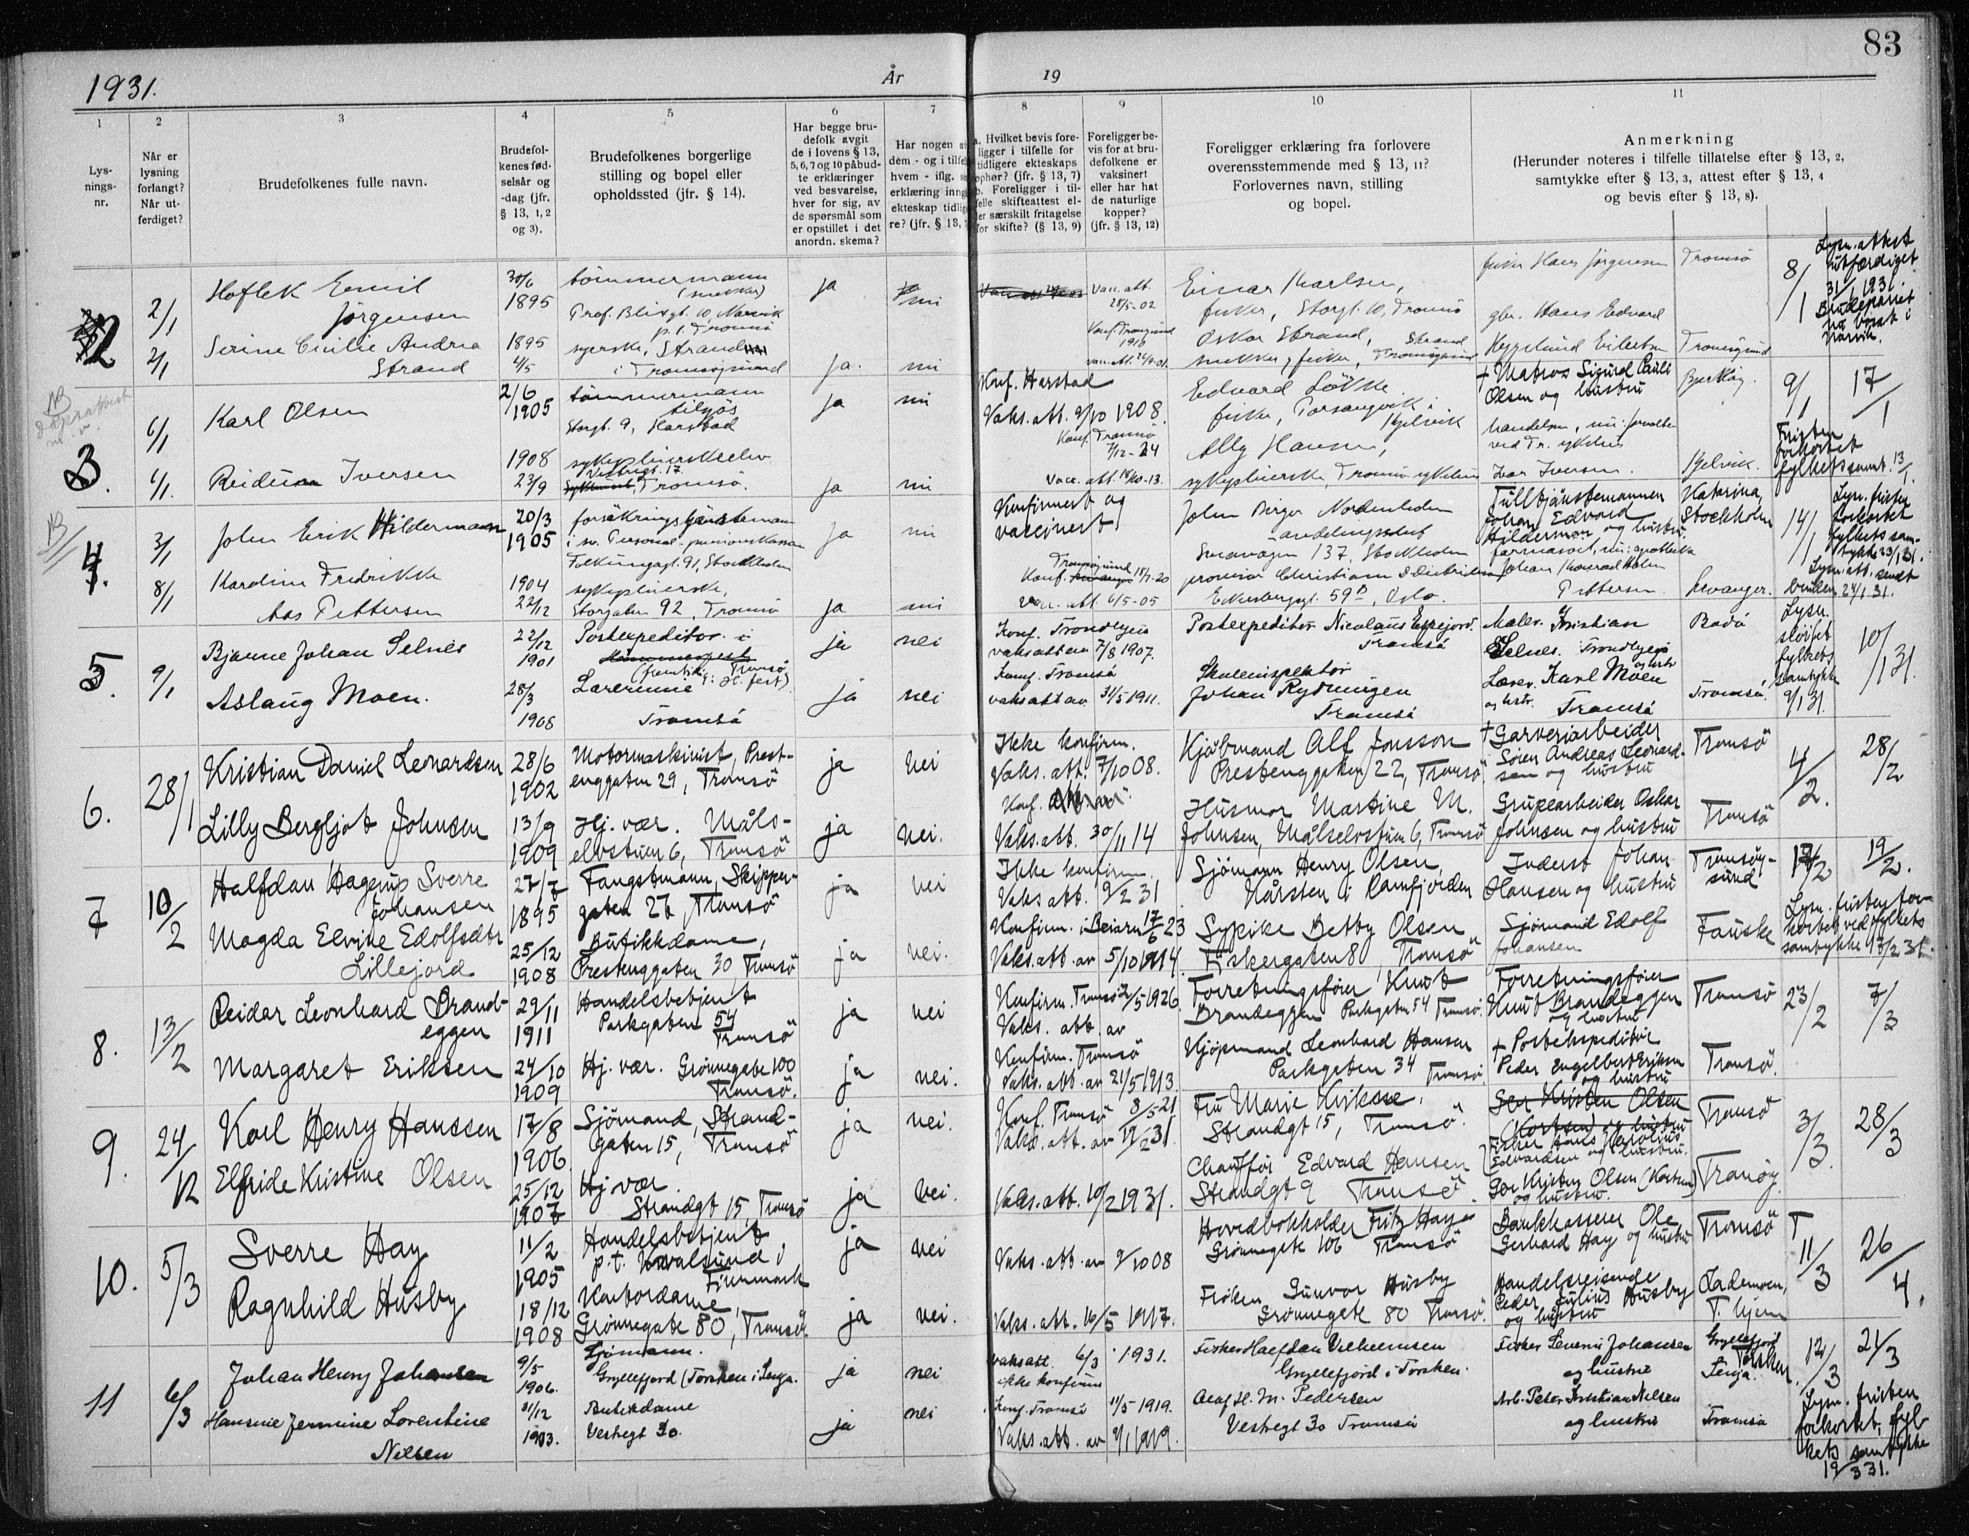 83
1931.
År
19
1
2
3
4
5
6
7
8
9
10
11
Lys-
nings-
nr.
Når er
lysning
forlangt?
Når ut-
ferdiget?
Brudefolkenes fulle navn.
Brudefol-
kenes fød-
selsår og
-dag (jfr.
§ 13, 1, 2
og 3).
Brudefolkenes borgerlige
stilling og bopel eller
opholdssted (jfr. § 14).
Har begge bru-
defolk avgit
de i lovens § 13,
5, 6, 7 og 10 påbud-
te erklæringer
ved besvarelse,
hver for sig, av
de spørsmål som
er opstillet i det
anordn. skema?
Har nogen a
dem - og i tilfel
hvem - iflg.
erklæring inng
ekteskap tidlig
re? (jfr. § 13,
a. Hvilket bevis fore-
ligger i tilfelle for
tidligere ekteskaps
ophør? (jfr. § 13, 7)
b. Foreligger i til-
felle skifteattest el-
ler særskilt fritagelse
for skifte? (§ 13, 9)
Foreligger be-
vis for at bru-
defolkene er
vaksinert
eller har hat
de naturlige
kopper?
(jfr. § 13, 12)
Foreligger erklæring fra forlovere
overensstemmende med § 13, 11?
Forlovernes navn, stilling
og bopel.
Anmerkning
(Herunder noteres i tilfelle tillatelse efter § 13, 2,
samtykke efter § 13, 3, attest efter § 13, 4
og bevis efter § 13, 8).
2
2/1
Hoflek Emil
Jörgensen
30/6
1895
tömmermann
(snekker)
Prof. Blixgt. 10, Narvik
p. t. Tromsö
ja
Vac. att.
28/5-02
Einar Karlsen,
fisker, Storgt. 10, Tromsö
fisker Hans Jörgensen
Tromsö
8/1
Lysn. attest
utfærdiget
31/1 1931.
Brudeparret
på bosat i
Narvik.
2/1
Serine Cecilie Andrea
Strand
1895
4/5
syerske, Strand
i Tromsøysund
ja.
Konf. Tromsøsund
1910
Oskar Strand, Strand
snekker, fisker, Tromsøysund
gbr. Hans Edvard
Heggelund Eilertsen
Tromsøsund
NB
3.
6/1
Karl Olsen
2/6
1905
tömmermann
tilhos
Storgt. 9, Harstad
ja
Konf. Harstad
Vaks. att. 9/10 1908.
Edvard Lökke
fisker, Porsangvik i
Kjelvik
+ Matros Sigurd Pauli
Olsen og hustru
Bjarköy.
9/1
17/1
6/1.
Reidun Iversen
1908
23/9
sykepleierskeelev
Vestregt. 17
Tromsö.
ja
Konf. Tromsö
7/12-24
vacc. att. 18/10-13.
Ally Hansen,
sykepleierske, Tromsö sykehus
Ivar Iversen.
Kjelvik.
Fristen
forkortet
fylkets samt. 13/1.
NB
4.
3/1
John Erik Hilderman
20/3
1905
försäkringstjänsteman
i sv. Personal-pensionskassan
Folkungagt. 91, Stockholm
ja
Konfirmert og
vaccinert
John Birger Nordenheden
Svenavägen 137, Stockholm
Tulltjänstemannen
Johan Edvard
Hilderman og hustru
Katarina,
Stockholm
14/1
Lysn. frister
forkortet
fylkets sam-
tykke 23/1 31.
8/1
Karoline Fredrikke
Aas Pettersen
1904
22/12
sykepleierske,
Storgaten 92, Tromsö
ja
Tromsøsund
Konf. 18/7-20
vac. att. 6/5-05
provisor Christian S Diedrichsen
Eckersbergsgt. 59B, Oslo.
farmasøit, nu: apotheker
Johan Konrad Holm
Pettersen
Levanger.
Lysn. att. sendt
bruden 24/1 31.
5.
9/1
Bjarne Johan Selnes
22/12
1901
Postexpeditør i
Hammerfest
ja
nei
Konf. Trondhjem
vaksattav 7/8 1907.
Postexpeditør Nicolaus Espejord.
Tromsö
Maler Kristian
Selnes. Trondhjem
Bodö
Lysn.
sløifet
fylkets
samtykke
9/1 31.
10/1 31.
Aslaug Moen.
28/3
1908
Lærerinne
Tromsö
ja
nei
Konf. Tromsö
vaksattav 31/5 1911.
Skoleinspektör
Johan Rydningen
Tromsö
Lærer Karl Moen
og hstr. Tromsö
Tromsö.
6.
28/1
Kristian Daniel Leonardsen
28/6
1902
Motormaskinist, Prest-
enggaten 29, Tromsö
ja
Nei
Ikke konfirm.
Vaks. att. 7/10 08.
Kjöbmand Alf Jonsson
Prestenggaten 22, Tromsö
+ Garveriarbeider
Sören Andreas Leonard-
sen og hustru
Tromsö
4/2.
28/2
Lilly Bergljot Johnsen
13/9
1909
Hj. vær. Måls-
elvstuen 6, Tromsö
ja
nei.
Vaks. att. 30/11 14
Husmor Martine M.
Johnsen, Målselvstuen 6, Tromsö
Grupearbeider Oskar
Johnsen og hustru
Tromsö
7
10/2
Halfdan Hagerup Sverre
Johansen
27/7
1895
Fangstmann, Skipper-
gaten 27, Tromsö
ja
nei
Ikke konfirm.
Vaks. att. 9/2 31
Sjömann Henry Olsen,
Kårsten i Ramfjorden
Inderst Johan
Hansen og hustru
Tromsöy-
sund
17/2
19/2.
Magda Elvine Edolfsdtr
Lillejord
25/12
1908
Butikkdame,
Prestenggaten 30 Tromsö
ja
nei.
Konfirm. i Beiarn 17/6-23
Vaks. att. av 5/10 1914.
Sypike Betty Olsen
Fiskergaten 8, Tromsö
Sjömand Edolf
Johansen
Fauske
Lysn. fristen for-
kortet ved fylkets
samtykke 17/2 31.
8.
13/2
Reidar Leonhard Brand-
eggen
29/11
1911
Handelsbetjent
Parkgaten 54
Tromsö
ja
nei
Konfirm. Tromsö 2/5 1926
Vaks. att. av
Forretningsförer Knut
Brandeggen Parkgaten 54 Tromsö.
Forretningsförer
Knut Brandeggen
og hustru
Tromsö
23/2
7/3
Margaret Eriksen
24/10
1909
Hj. vær. Grönnegate 100
Tromsö.
ja
nei.
Konfirm. Tromsö
Vaks. att. av 21/5 1913.
Kjöpmand Leonhard Hansen
Parkgaten 34 Tromsö.
+ Postekspeditör
Peder Engelbert Eriksen
og hustru
Tromsö.
9.
24/12
Karl Henry Hanssen
17/8
1906
Sjömand, Strand-
gaten 15, Tromsö
ja
nei.
Konf. Tromsö 8/5-21
Vaks. att. av 19/2 31.
Fru Marie Eriksen.
Strandgt 15, Tromsö.
Gör Kristen Olsen
(Kortsen) og hustru
Edvardsen og hustru.
Tromsö
3/3.
28/3
Elfride Kristine Olsen
25/12
1907
Hj. vær
Strandgt 15 Tromsö
ja
nei.
Vaks. att. 10/2 1931.
Chaufför Edvard Hansen
Strandgt 9 Tromsö.
Gör Kristen Olsen (Kortsen)
og hustru.
Tranöy.
10.
5/3
Sverre Hay
11/2
1905
Handelsbetjent,
p.t. Kvalsund i
Finnmark
ja
nei
Vaks. att. av 9/10 08
Hovedbokholder Fritz Hay
Grönnegate 106 Tromsö
Bankkasserer Ole
Gerhard Hay og hustru
Tromsö
T
11/3
26/4.
Ragnhild Husby
18/12
1908
Kontordame,
Grönnegate 80, Tromsö
ja
nei.
Vaks. att. 16/5 1917.
Fröken Gunvor Husby
Grönnegate 80 Tromsö.
Handelsreisende
Peder Julius Husby
og hustru
Lademoen,
T.hjem
11
6/3
Johan Henry Johansen
9/5
1906.
Sjömann.
Gryllefjord (Torsken i Senja.
ja
nei
vaksatt. 6/3 1931.
ikke konfirm
Fisker Halfdan Vilhelmsen
Gryllefjord i Torsken.
Fisker Severin Johansen
og hustru
Gryllefjord
Torsken,
Senja.
12/3
21/3
Hansine Jermine Lorentine
Nilsen
31/12
1903.
Butikdame
Vestregt 30.
ja
nei
Konf. Tromsö 11/5 1919.
Vaks. att. av 9/1 1919.
Olaf H. M. Pedersen
Vestregt 30 Tromsö
Arb. Peter Kristian Nilsen
og hustru
Tromsö
Lysn. fristen
forkortet, fyl-
kets samtykke
19/3 31.